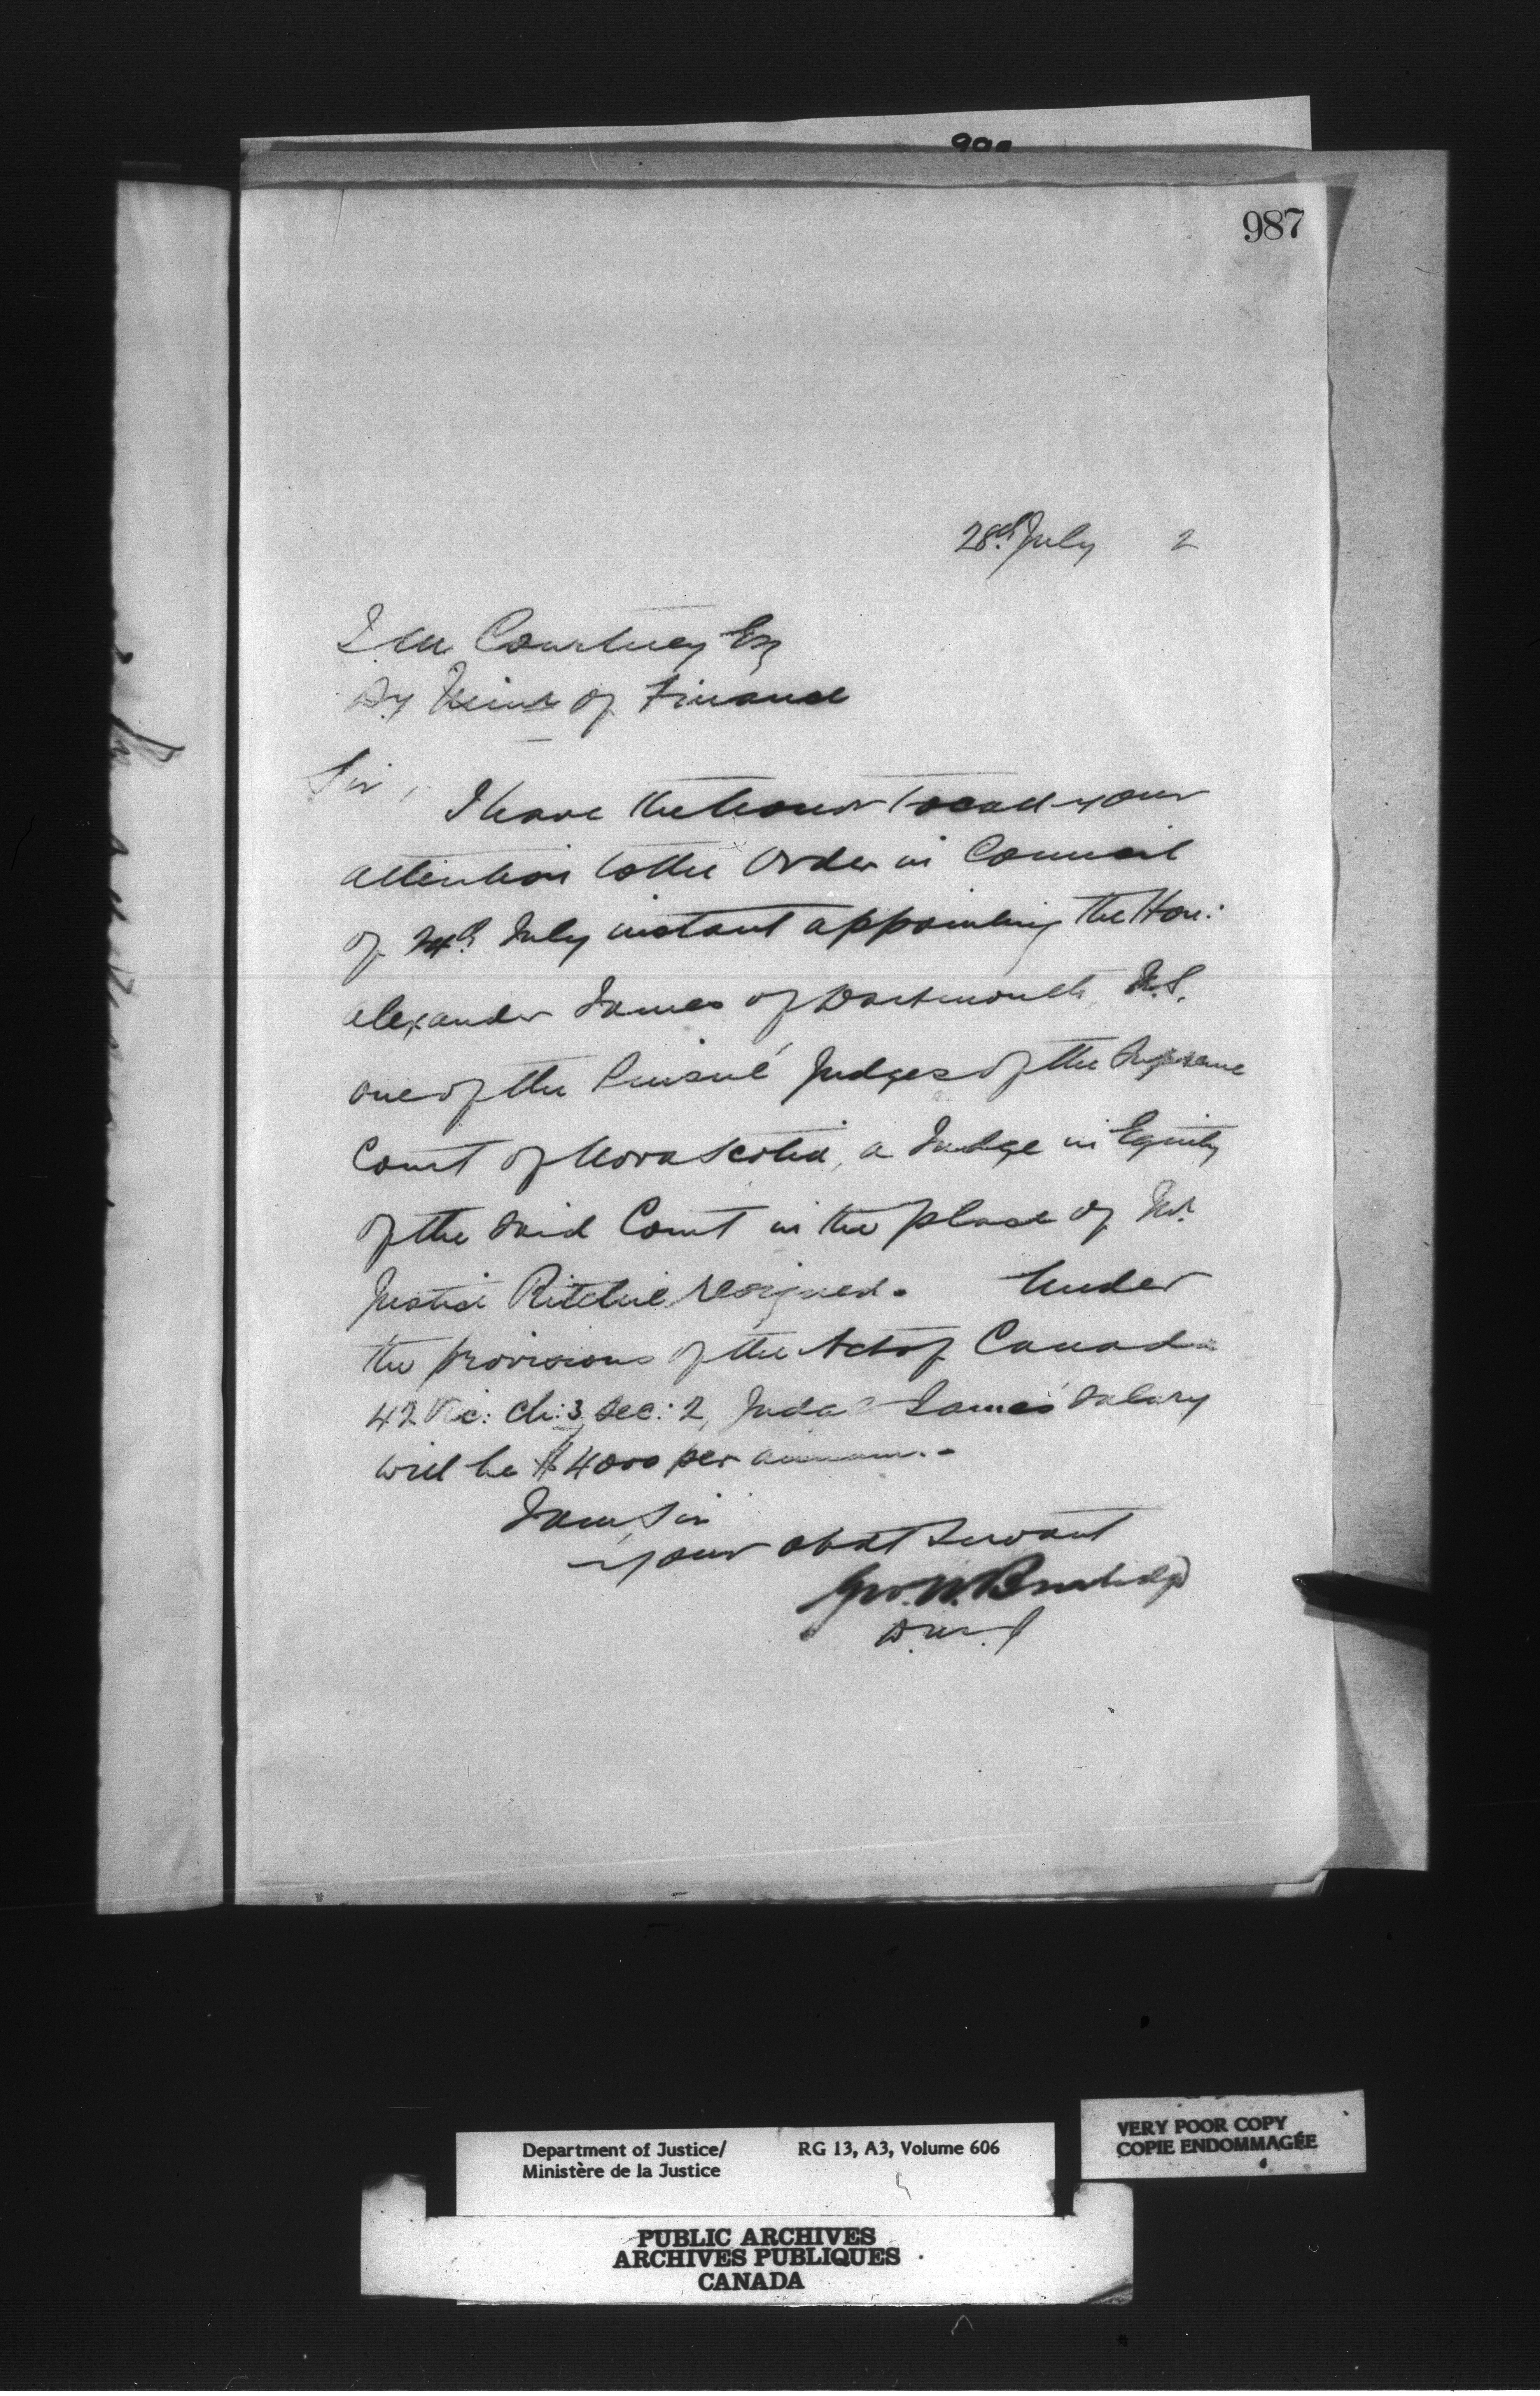 987
28th July 2
J. M. Courtney Esq
Dy Minr of Finance
Sir,
I have the honor to call your
attention to the Order in Council
of July instant appointing the Hon:
Alexander James of Dartmouth, N.S.
one of the Puisné Judges of the Supreme
Court of Nova Scotia, a Judge in Equity
of the said Court in the place of Mr.
Justice Ritchie resigned. Under
the provisions of the Act of Canada
42 Vic: Ch: 3, Sec: 2, James' salary
will be $4000 per annum.
I am Sir
your obdt Servant
Geo. W. Burbidge
D.M.J
Department of Justice/ RG 13, A3, Volume 606
Ministère de la Justice
VERY POOR COPY
COPIE ENDOMMAGÉE
PUBLIC ARCHIVES
ARCHIVES PUBLIQUES
CANADA